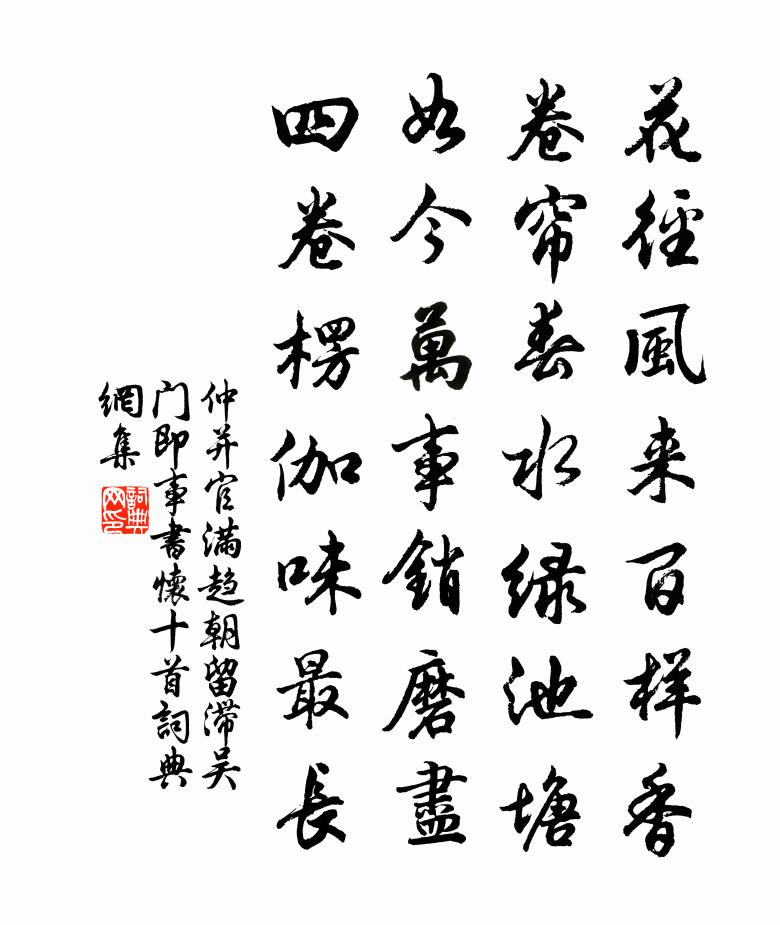 花徑風来百样香
卷帘春水緑池塘
如今萬事銷磨盡
四卷楞伽味最長
仲并官滿趋朝留滯吴
门即事書懷十首詞典
網集
詞典
网印